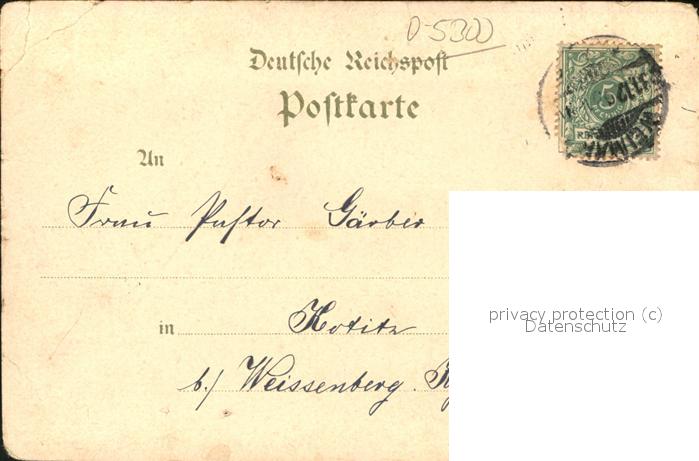 D-5300
Deutsche Reichspost
Postkarte
An
Frau Pastor Gärber
in Kotitz
b./ Weissenberg.
privacy protection (c)
Datenschutz
5
WEIMAR